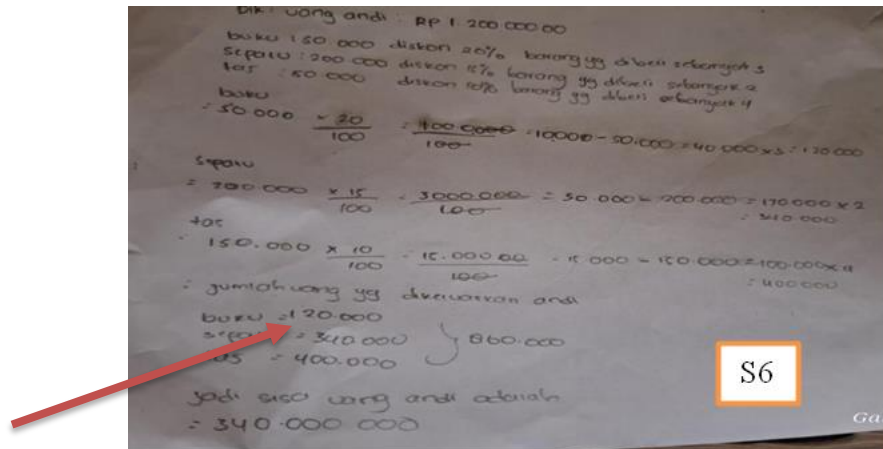 Dik : uang andi : RP 1.200.000.00
buku : 50.000 diskon 20% barang yg dibeli sebanyak 3
sepatu : 200.000 diskon 15% barang yg dibeli sebanyak 2
tas : 50.000 diskon 10% barang yg dibeli sebanyak 4
buku
= 50.000 × 20/100 = 100.0000/100 = 10.000 - 50.000 = 40.000 x 3 = 120.000
sepatu
= 200.000 × 15/100 = 3000.000/100 = 30.000 - 200.000 = 170.000 x 2
= 340.000
tas
= 150.000 × 10/100 = 15.000 00/100 = 15.000 - 150.000 = 100.000 x 4
= 400.000
= jumlah uang yg dikeluarkan andi
buku = 120.000
sepatu = 340.000 } 860.000
tas = 400.000
jadi sisa uang andi adalah
= 340.000.000
S6
Ga